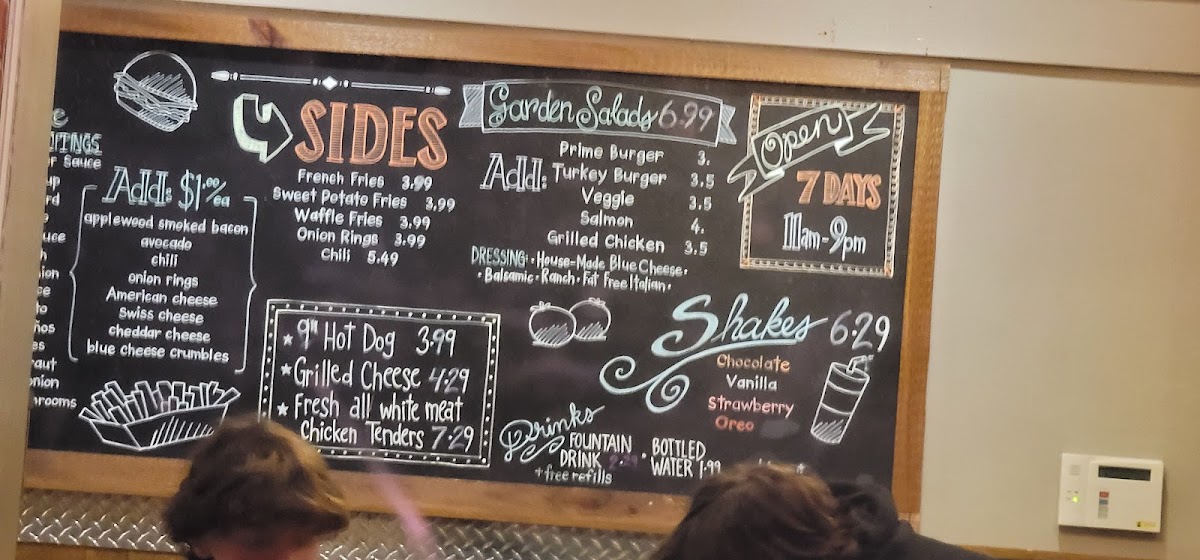 TTINGS
Sauce
Add: $1.00/ea
applewood smoked bacon
avocado
chili
onion rings
American cheese
Swiss cheese
cheddar cheese
blue cheese crumbles
SIDES
French Fries 3.99
Sweet Potato Fries 3.99
Waffle Fries 3.99
Onion Rings 3.99
Chili 5.49
★ 9" Hot Dog 3.99
★ Grilled Cheese 4.29
★ Fresh all white meat
Chicken Tenders 7.29
Garden Salads 6.99
Add:
Prime Burger 3.
Turkey Burger 3.5
Veggie 3.5
Salmon 4.
Grilled Chicken 3.5
DRESSING: • House-Made Blue Cheese •
• Balsamic • Ranch • Fat Free Italian •
Open
7 DAYS
11am-9pm
Shakes 6.29
Chocolate
Vanilla
Strawberry
Oreo
Drinks
FOUNTAIN
DRINK 2.29
+free refills
• BOTTLED
WATER 1.99